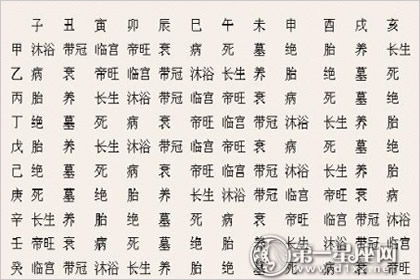 子 丑 寅 卯 辰 巳 午 未 申 酉 戌 亥
甲 沐浴 带冠 临宫 帝旺 衰 病 死 墓 绝 胎 养 长生
乙 病 衰 帝旺 临宫 带冠 沐浴 长生 养 胎 绝 墓 死
丙 胎 养 长生 沐浴 带冠 临宫 帝旺 衰 病 死 墓 绝
丁 绝 墓 死 病 衰 帝旺 临宫 带冠 沐浴 长生 养 胎
戊 胎 养 长生 沐浴 带冠 临宫 帝旺 衰 病 死 墓 绝
己 绝 墓 死 病 衰 帝旺 临宫 带冠 沐浴 长生 养 胎
庚 死 墓 绝 胎 养 长生 沐浴 带冠 临宫 帝旺 衰 病
辛 长生 养 胎 绝 墓 死 病 衰 帝旺 临宫 带冠 沐浴
壬 帝旺 衰 病 死 墓 绝 胎 养 长生
癸 临宫 带冠 沐浴 长生 养 胎 绝 墓 死 病 衰 帝旺
第一星座网